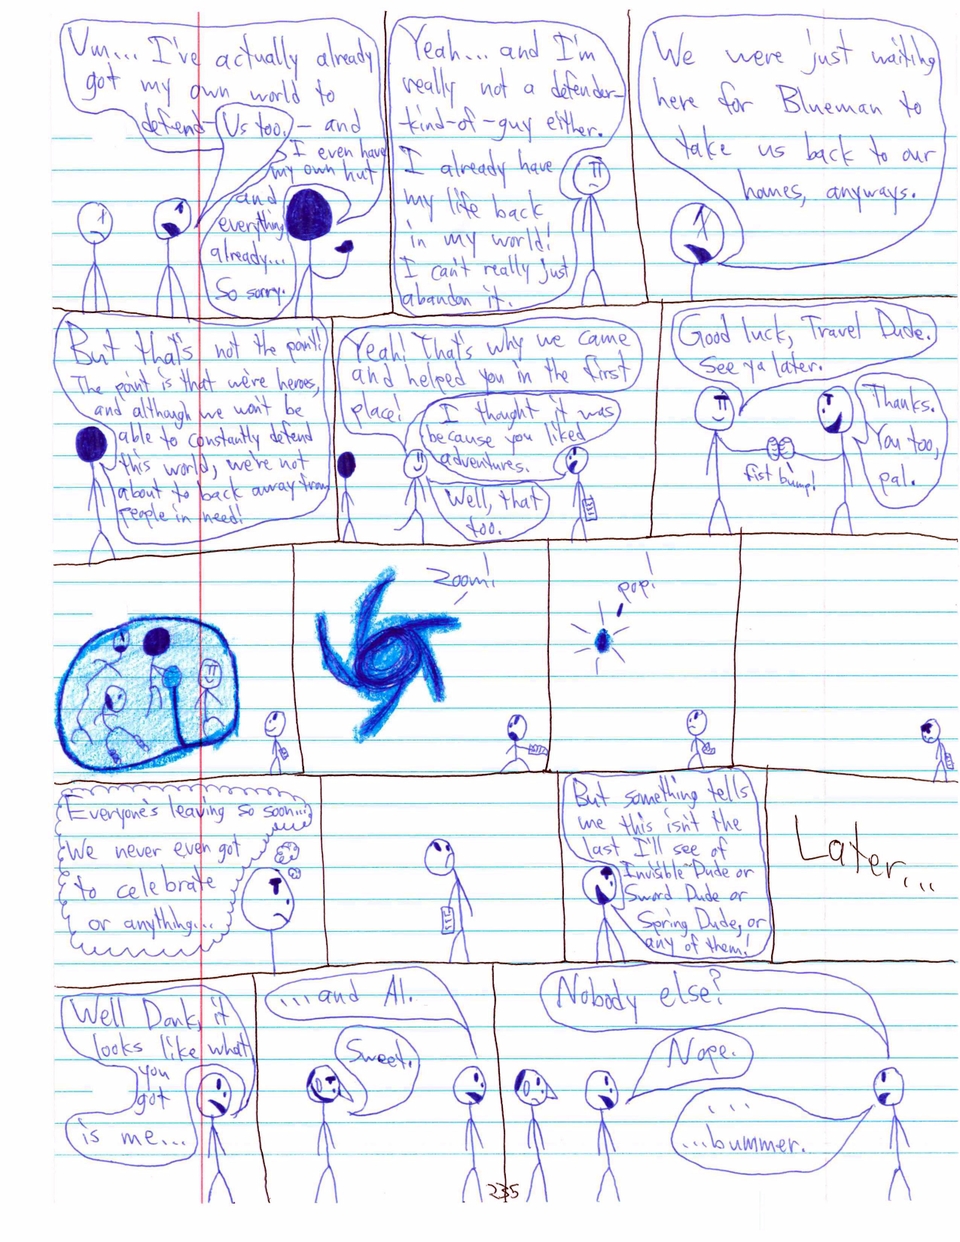 Um... I've actually already
got my own world to
defend-
Us too.
- and
I even have
my own hut
and
everything
already...
So sorry.
Yeah... and I'm
really not a defender-
-kind-of-guy either.
I already have
my life back
in my world!
I can't really just
abandon it.
We were just waiting
here for Blueman to
take us back to our
homes, anyways.
But that's not the point!
The point is that we're heroes,
and although we won't be
able to constantly defend
this world, we're not
about to back away from
people in need!
Yeah! That's why we came
and helped you in the first
place!
I thought it was
because you liked
adventures.
Well, that
too.
Good luck, Travel Dude.
See ya later.
Thanks.
You too,
pal.
fist bump!
Zoom!
pop!
Everyone's leaving so soon...
We never even got
to celebrate
or anything...
But something tells
me this isn't the
last I'll see of
Invisible Dude or
Sword Dude or
Spring Dude, or
any of them!
Later...
Well Dank, it
looks like what
you
got
is me...
...and Al.
Sweet.
Nobody else?
Nope.
...
...bummer.
235